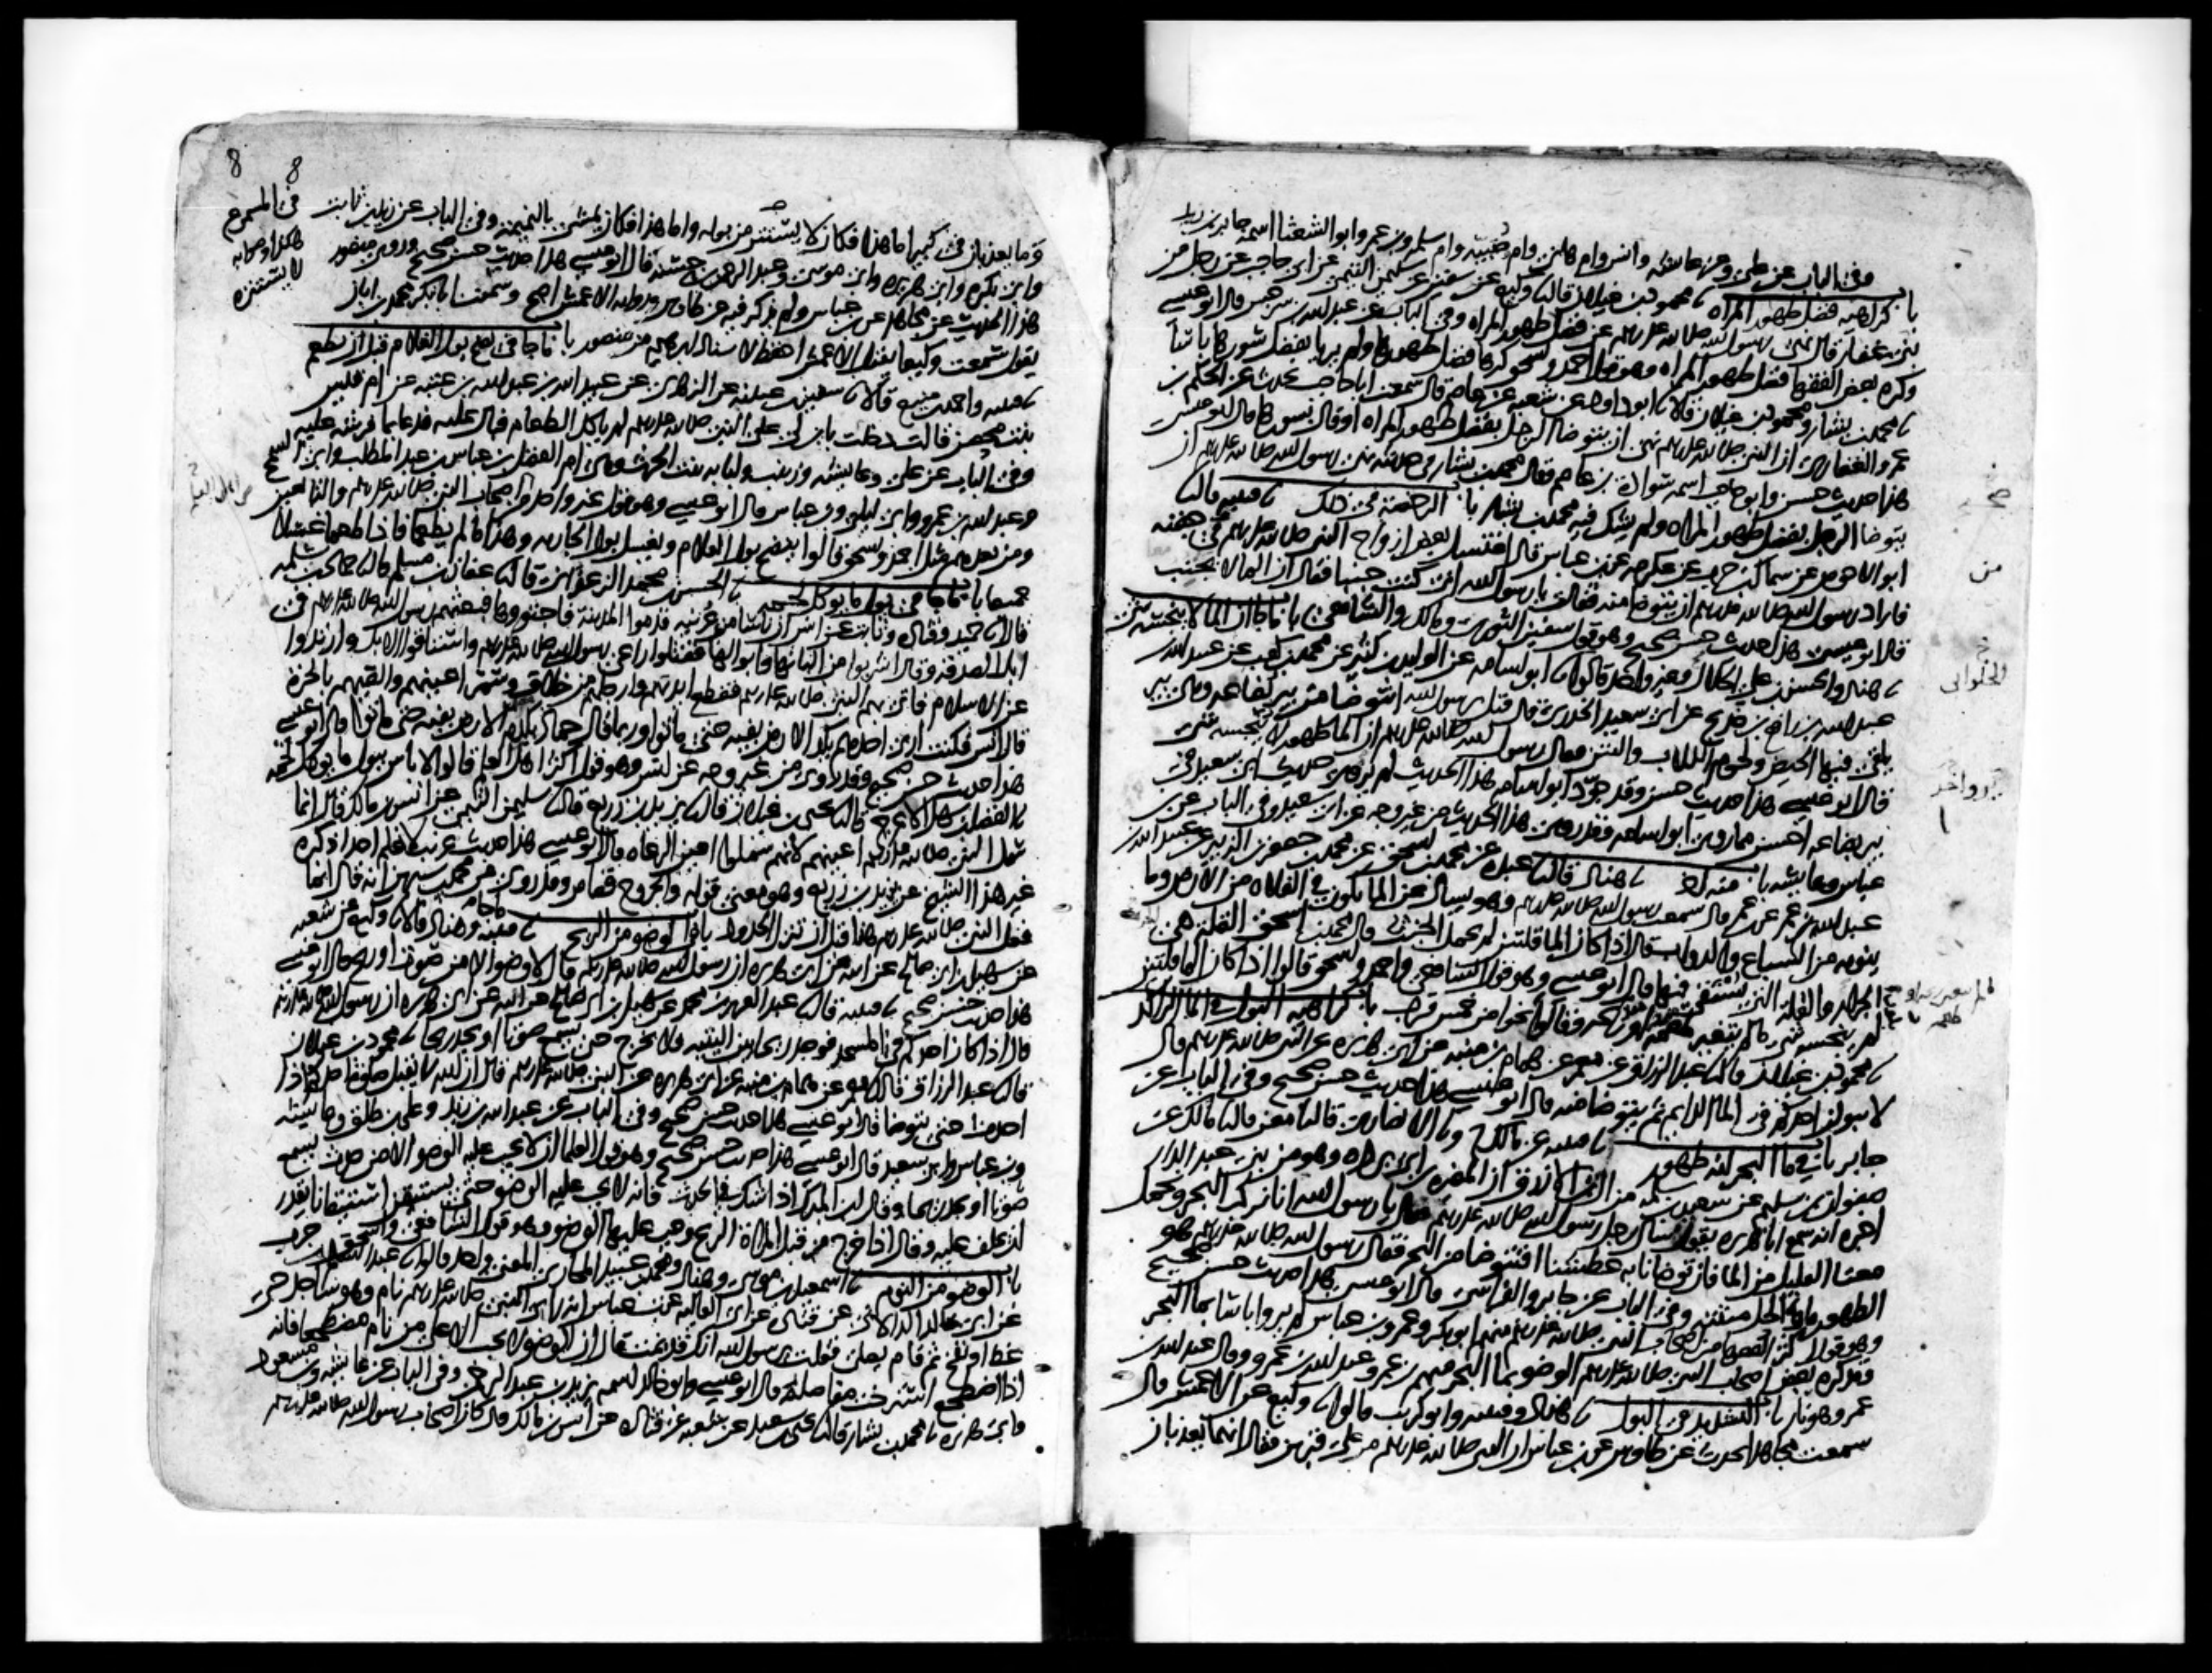 وفي الباب عن علي وعن عائشه وانس وام هانئ وام صبيه وام سلمه وبن عمر وابو الشعثا اسمه جابر بن زيد
باب كراهيه فضل طهور المراه نا محمود بن غيلان قال نا وكيع عن سفين عن سليمن التيمي عن ابي حاجب عن رجل من
بني غفار قال نهى رسول الله صلى الله عليه وسلم عن فضل طهور المراه وفي الباب عن عبد الله بن سرجس قال ابو عيسى
وكره بعض الفقها فضل طهور المراه وهو قول احمد واسحق كرها فضل طهورها ولم يريا بفضل سورها باسا
نا محمد بن بشار ومحمود بن غيلان قالا نا ابو داود عن شعبه عن عاصم قال سمعت ابا حاجب يحدث عن الحكم بن
عمرو الغفاري ان النبي صلى الله عليه وسلم نهى ان يتوضا الرجل بفضل طهور المراه او قال بسورها قال ابو عيسى
هذا حديث حسن وابو حاجب اسمه سوادة بن عاصم وقال محمد بن بشار في حديثه نهى رسول الله صلى الله عليه وسلم ان
يتوضا الرجل بفضل طهور المراه ولم يشك فيه محمد بن بشار باب الرخصة في ذلك نا قتيبه قال نا
ابو الاحوص عن سماك بن حرب عن عكرمه عن بن عباس قال اغتسل بعض ازواج النبي صلى الله عليه وسلم في جفنه
فاراد رسول الله صلى الله عليه وسلم ان يتوضا منه فقالت يا رسول الله اني كنت جنبا فقال ان الما لا يجنب
قال ابو عيسى هذا حديث حسن صحيح وهو قول سفين الثوري ومالك والشافعي باب ما جا ان الما لا ينجسه شي
نا هناد والحسن بن علي الخلال وغير واحد قالوا نا ابو اسامه عن الوليد بن كثير عن محمد بن كعب عن عبيد الله بن
عبد الله بن رافع بن خديج عن ابي سعيد الخدري قال قيل يا رسول الله انتوضا من بير بضاعه وهي بير
يلقى فيها الحيض ولحوم الكلاب والنتن فقال رسول الله صلى الله عليه وسلم ان الما طهور لا ينجسه شي
قال ابو عيسى هذا حديث حسن وقد جود ابو اسامه هذا الحديث لم يرو حديث ابي سعيد في
بير بضاعه احسن مما روى ابو اسامه وقد روي هذا الحديث من غير وجه عن ابي سعيد وفي الباب عن بن
عباس وعايشه باب منه اخر نا هناد قال نا عبده عن محمد بن اسحق عن محمد بن جعفر بن الزبير عن عبيد الله بن
عبد الله بن عمر عن بن عمر قال سمعت رسول الله صلى الله عليه وسلم وهو يسال عن الما يكون في الفلاه من الارض وما
ينوبه من السباع والدواب قال اذا كان الما قلتين لم يحمل الخبث قال محمد بن اسحق القله هي
الجرار والقله التي يستقى فيها قال ابو عيسى وهو قول الشافعي واحمد واسحق قالوا اذا كان الما قلتين
لم ينجسه شي ما لم يتغير وقالوا نحوا من خمس قرب باب كراهيه البول في الما الراكد
نا محمود بن غيلان قال نا عبد الرزاق عن معمر عن همام بن منبه عن ابي هريره عن النبي صلى الله عليه وسلم قال
لا يبولن احدكم في الما الدايم ثم يتوضا منه قال ابو عيسى هذا حديث حسن صحيح وفي الباب عن
جابر باب في ما البحر انه طهور نا قتيبه عن مالك ح ونا الانصاري قال نا معن قال نا مالك عن
صفوان بن سليم عن سعيد بن سلمه من ال بن الازرق ان المغيره بن ابي برده وهو من بني عبد الدار
اخبره انه سمع ابا هريره يقول سال رجل رسول الله صلى الله عليه وسلم فقال يا رسول الله انا نركب البحر ونحمل
معنا القليل من الما فان توضانا به عطشنا افنتوضا من البحر فقال رسول الله صلى الله عليه وسلم هو
الطهور ماوه الحل ميتته وفي الباب عن جابر والفراسي قال ابو عيسى هذا حديث حسن صحيح
وهو قول اكثر الفقها من اصحاب النبي صلى الله عليه وسلم منهم ابو بكر وعمر وبن عباس لم يروا باسا بما البحر
وقد كره بعض اصحاب النبي صلى الله عليه وسلم الوضو بما البحر منهم بن عمر وعبد الله بن عمرو وقال عبد الله بن
عمرو هو نار باب التشديد في البول نا هناد وقتيبه وابو كريب قالوا نا وكيع عن الاعمش قال
سمعت مجاهدا يحدث عن طاوس عن بن عباس ان النبي صلى الله عليه وسلم مر على قبرين فقال انهما يعذبان
من
الحلواني
8 8
وما يعذبان في كبير اما هذا فكان لا يستتر من بوله واما هذا فكان يمشي بالنميمه وفي الباب عن زيد بن ثابت
وابي بكره وابي هريره وابي موسى وعبد الرحمن بن حسنه قال ابو عيسى هذا حديث حسن صحيح وروى منصور
هذا الحديث عن مجاهد عن بن عباس ولم يذكر فيه عن طاوس وروايه الاعمش اصح وسمعت ابا بكر محمد بن ابان
يقول سمعت وكيعا يقول الاعمش احفظ لاسناد ابرهيم من منصور باب ما جا في نضح بول الغلام قبل ان يطعم
نا قتيبه واحمد بن منيع قالا نا سفين بن عيينه عن الزهري عن عبيد الله بن عبد الله بن عتبه عن ام قيس
بنت محصن قالت دخلت بابن لي على النبي صلى الله عليه وسلم لم ياكل الطعام فبال عليه فدعا بما فرشه عليه
وفي الباب عن علي وعايشه وزينب ولبابه بنت الحرث وهي ام الفضل بن عباس بن عبد المطلب وابي السمح
وعبد الله بن عمرو وابي ليلى وبن عباس قال ابو عيسى وهو قول غير واحد من اصحاب النبي صلى الله عليه وسلم والتابعين
ومن بعدهم مثل احمد واسحق قالوا ينضح بول الغلام ويغسل بول الجاريه وهذا ما لم يطعما فاذا طعما غسلا
جميعا باب ما جا في بول ما يوكل لحمه نا الحسن بن محمد الزعفراني قال نا عفان بن مسلم قال نا حماد بن سلمه
قال نا حميد وقتاده وثابت عن انس ان ناسا من عرينه قدموا المدينه فاجتووها فبعثهم رسول الله صلى الله عليه وسلم في
ابل الصدقه وقال اشربوا من البانها وابوالها فقتلوا راعي رسول الله صلى الله عليه وسلم واستاقوا الابل وارتدوا
عن الاسلام فاتي بهم النبي صلى الله عليه وسلم فقطع ايديهم وارجلهم من خلاف وسمر اعينهم والقاهم بالحره
قال انس فكنت ارى احدهم يكد الارض بفيه حتى ماتوا وربما قال حماد يكدم الارض بفيه حتى ماتوا قال ابو عيسى
هذا حديث حسن صحيح وقد روي من غير وجه عن انس وهو قول اكثر اهل العلم قالوا لا باس ببول ما يوكل لحمه
نا الفضل بن سهل الاعرج قال نا يحيى بن غيلان قال نا يزيد بن زريع قال نا سليمن التيمي عن انس بن مالك قال انما
سمل النبي صلى الله عليه وسلم اعينهم لانهم سملوا اعين الرعاه قال ابو عيسى هذا حديث غريب لا نعلم احدا ذكره
غير هذا الشيخ عن يزيد بن زريع وهو معنى قوله والجروح قصاص وقد روي عن محمد بن سيرين انه قال انما
فعل النبي صلى الله عليه وسلم هذا قبل ان تنزل الحدود باب ما جا في الوضو من الريح نا قتيبه وهناد قالا نا وكيع عن شعبه
عن سهيل بن ابي صالح عن ابيه عن ابي هريره ان رسول الله صلى الله عليه وسلم قال لا وضو الا من صوت او ريح قال ابو عيسى
هذا حديث حسن صحيح نا قتيبه قال نا عبد العزيز بن محمد عن سهيل بن ابي صالح عن ابيه عن ابي هريره ان رسول الله صلى الله عليه وسلم
قال اذا كان احدكم في المسجد فوجد ريحا بين اليتيه فلا يخرج حتى يسمع صوتا او يجد ريحا نا محمود بن غيلان
قال نا عبد الرزاق قال نا معمر عن همام بن منبه عن ابي هريره عن النبي صلى الله عليه وسلم قال ان الله لا يقبل صلاة احدكم اذا
احدث حتى يتوضا قال ابو عيسى هذا حديث حسن صحيح وفي الباب عن عبد الله بن زيد وعلي بن طلق وعايشه
وبن عباس وابي سعيد قال ابو عيسى هذا حديث حسن صحيح وهو قول العلما ان لا يجب عليه الوضو الا من حدث يسمع
صوتا او يجد ريحا وقال ابن المبارك اذا شك في الحدث فانه لا يجب عليه الوضو حتى يستيقن استيقانا يقدر
ان يحلف عليه وقال اذا خرج من قبل المراة الريح وجب عليها الوضو وهو قول الشافعي واسحق
باب الوضو من النوم نا اسمعيل بن موسى وهناد ومحمد بن عبيد المحاربي المعنى واحد قالوا نا عبد السلام بن حرب
عن ابي خالد الدالاني عن قتاده عن ابي العاليه عن بن عباس انه راى النبي صلى الله عليه وسلم نام وهو ساجد حتى
غط او نفخ ثم قام يصلي فقلت يا رسول الله انك قد نمت قال ان الوضو لا يجب الا على من نام مضطجعا فانه
اذا اضطجع استرخت مفاصله قال ابو عيسى وابو خالد اسمه يزيد بن عبد الرحمن وفي الباب عن عايشه وبن مسعود
وابي هريره نا محمد بن بشار قال نا يحيى بن سعيد عن شعبه عن قتاده عن انس بن مالك قال كان اصحاب رسول الله صلى الله عليه وسلم
لا يستنزه